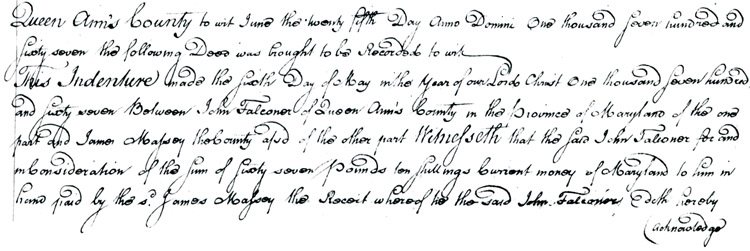 Queen Ann's County to wit June the twenty fifth Day Anno Domini One thousand seven hundred and
sixty seven the following Deed was brought to be Recorded to wit
This Indenture made the sixth Day of May in the Year of our Lord Christ One thousand seven hundred
and sixty seven Between John Falconer of Queen Ann's County in the Province of Maryland of the one
part and James Massey the County afsd of the other part Witnesseth that the said John Falconer for and
in Consideration of the sum of sixty seven Pounds ten shillings Current money of Maryland to him in
hand paid by the sd. James Massey the Receit whereof he the said John Falconer doth hereby
Acknowledge